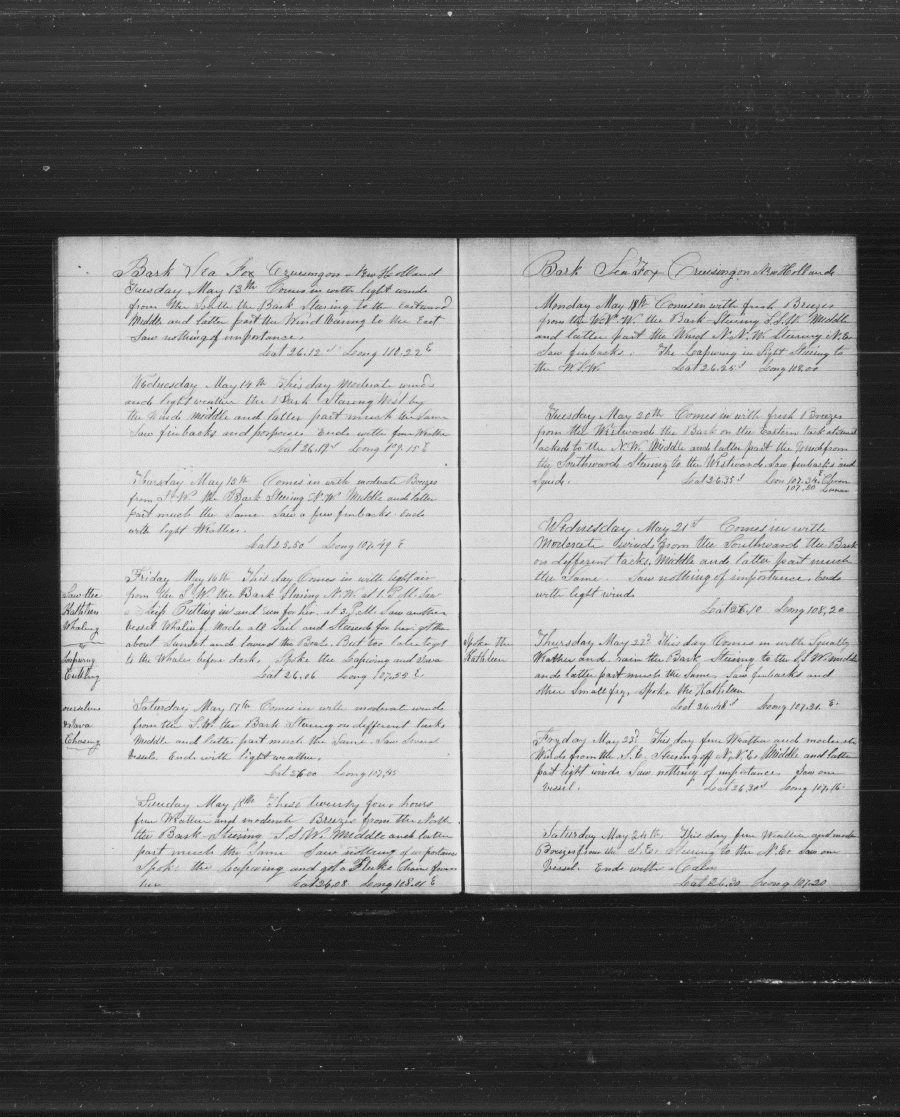 Bark Sea Fox Cruising on New Holland
Tuesday May 13th Comes in with light winds
from the South the Bark Stering to the eastward
Middle and latter part the Wind baring to the East
Saw nothing of importance.
Lat 26.12 S Long 108.22 E
Wednesday May 14th This day Moderate winds
and light weather the Bark Staring West by
the Wind Middle and latter part much the Same
Saw finbacks and porpoises Ends with fine Weather
Lat 26.19 S Long 107.15 E
Thursday May 15th Comes in with moderate Breezes
from S.W. the Bark Steering N.W. Middle and latter
part much the Same Saw a few finbacks. Ends
with light Weather.
Lat 25.50 S Long 107.49 E
Friday May 16th This day Comes in with light air
from the S.W. the Bark Stering N.W. at 1 P.M. Saw
a Ship Cutting in and run for her. at 3 P.M. Saw another
vessel Whaling Made all Sail and Steered for her got the
about Sunset and lowerd the Boats. But too late to get
to the Whales before dark. Spoke the Lapwing and Java
Lat 26.06 Long 107.52 E
Saw the
Kathleen
Whaling
Lapwing
Cutting
ourselves
& Java
Chasing
Saturday May 17th Comes in with moderate winds
from the S.W. the Bark Stering on different tacks
Middle and latter part much the Same Saw Several
vessels Ends with light weather.
Lat 26.00 Long 107.45
Sunday May 18th These twenty four hours
fine Weather and moderate Breezes from the North
the Bark Steering S.S.W. Middle and latter
part much the Same Saw nothing of importance
Spoke the Lapwing and got a Fluke Chain from
her Lat 26.08 Long 108.01 E
Bark Sea Fox Cruising on New Hollande
Monday May 19th Comes in with fresh Breezes
from the W.N.W. the Bark Steering S.S.W. Middle
and latter part the Wind N.N.W. Stearing N.E.
Saw finbacks. The Lapwing in Sight Stering to
the W.S.W. Lat 26.25 S Long 108.00
Tuesday May 20th Comes in with fresh Breezes
from the Westward the Bark on the Eastern tack at
tacked to the N.W. Middle and latter part the Wind from
the Southward Stering to the Westward Saw finbacks and
Squid. Lat 26.35 S Lon 107.34 E Chron
107.50 Lunar
Wednesday May 21st Comes in with
Moderate winds from the Southward the Bark
on different tacks, Middle and latter part much
the Same. Saw nothing of importance. Ends
with light winds
Lat 26.10 Long 108.20
Spoke the
Kathleen
Thursday May 22d This day Comes in with Squally
Weather and rain the Bark Stering to the S.S.W. middle
and latter part much the Same. Saw finbacks and
other Small fry, Spoke the Kathleen
Lat 26.48 S Long 107.21 E.
Fryday May 23d This day fine Weather and moderate
Winds from the S.E. Steering off N.N.E. Middle and latter
part light winds Saw nothing of importance. Saw one
Vessel. Lat 26.30 S Long 107.16
Saturday May 24th This day fine Weather and
Breezes from the S.E. Stering to the N.E. Saw one
Vessel. Ends with a Calm
Lat 26.30 Long 107.20